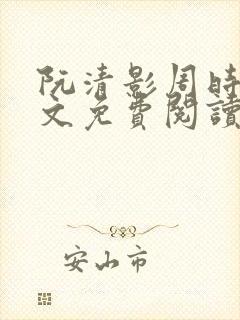 阮清影周時
文免費閱讀
安山市